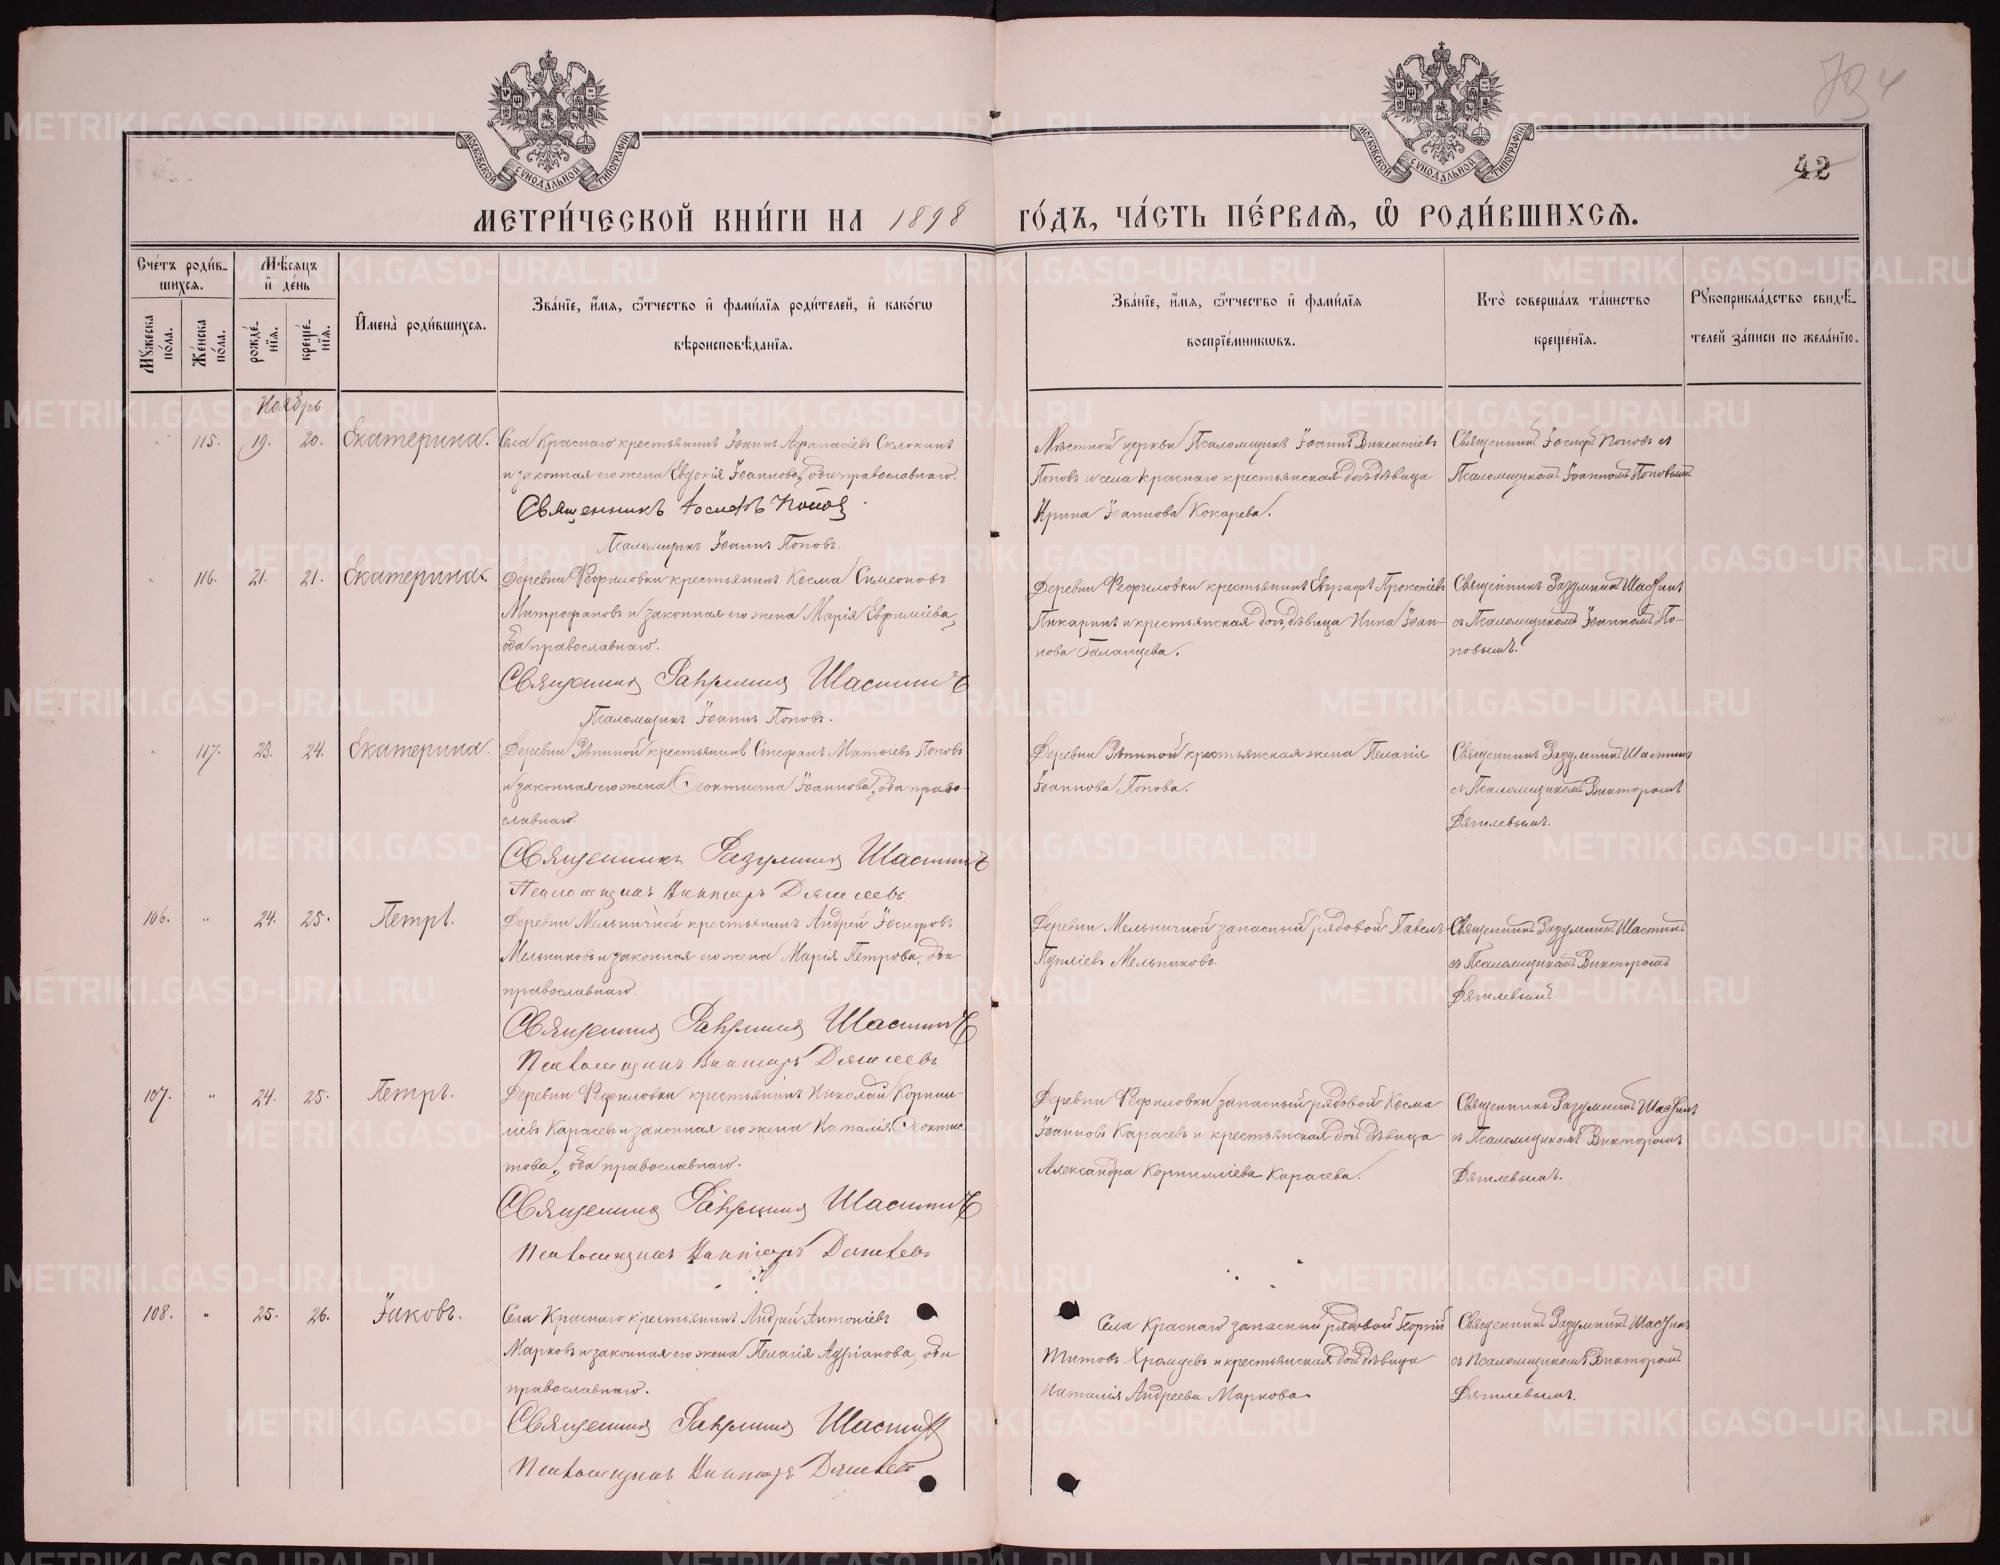 794
42
МОСКОВСКОЙ СУНОДАЛЬНОЙ ТИПОГРАФІИ
МОСКОВСКОЙ СУНОДАЛЬНОЙ ТИПОГРАФІИ
МЕТРИ́ЧЕСКОЙ КНИ́ГИ НА 1898 ГО́ДЪ, ЧА́СТЬ ПЕ́РВАѦ, Ѽ РОДИ́ВШИХСѦ.
Сче́тъ роди́в-
шихсѧ.
Мѣ́сѧцъ
и҆ де́нь
Мꙋ́жеска по́ла.
Же́нска по́ла.
рожде́-
нїѧ.
креще́-
нїѧ.
И҆мена̀ роди́вшихсѧ.
Зва́нїе, и҆́мѧ, ѻ҆́тчество и҆ фами́лїѧ роди́телей, и҆ како́гѡ
вѣроисповѣ́данїѧ.
Зва́нїе, и҆́мѧ, ѻ҆́тчество и҆ фами́лїѧ
воспрїе́мникѡвъ.
Кто̀ соверша́лъ та́инство
креще́нїѧ.
Рꙋкоприкла́дство свидѣ́-
телей за́писи по жела́нїю.
Ноябрь.
" 115. 19. 20. Екатерина.
Села Краснаго крестьянинъ Іоаннъ Аѳанасіевъ Склокинъ
и законная его жена Евдокія Іоаннова, оба православнаго.
Священникъ Іосифъ Поповъ
Псаломщикъ Іоаннъ Поповъ.
Мѣстной церкви Псаломщикъ Іоаннъ Викентіевъ
Поповъ и села Краснаго крестьянская дочь дѣвица
Ирина Іоаннова Кокарева.
Священникъ Іосифъ Поповъ съ
Псаломщикомъ Іоанномъ Поповымъ
" 116. 21. 21. Екатерина.
Деревни крестьянинъ Косма Симеоновъ
Митрофановъ и законная его жена Марія Евфиміева,
оба православнаго.
Священникъ Разумникъ Шастинъ
Псаломщикъ Іоаннъ Поповъ.
Деревни крестьянинъ Евграфъ Прокопіевъ
Пикаринъ и крестьянская дочь дѣвица Нина Іоан-
нова Галанцева.
Священникъ Разумникъ Шастинъ
съ Псаломщикомъ Іоанномъ По-
повымъ.
" 117. 23. 24. Екатерина.
Деревни Рѣпиной крестьянинъ Стефанъ Матѳіевъ Поповъ
и законная его жена Ѳеоктиста Іоаннова, оба право-
славнаго.
Священникъ Разумникъ Шастинъ
Псаломщикъ Викторъ Дягилевъ
Деревни Рѣпиной крестьянская жена Пелагія
Іоаннова Попова.
Священникъ Разумникъ Шастинъ
съ Псаломщикомъ Викторомъ
Дягилевымъ.
106. " 24. 25. Петръ.
Деревни Мельничной крестьянинъ Андрей Іосифовъ
Мельниковъ и законная его жена Марія Петрова, оба
православнаго.
Священникъ Разумникъ Шастинъ
Псаломщикъ Викторъ Дягилевъ
Деревни Мельничной запасный рядовой Павелъ
Мельниковъ.
Священникъ Разумникъ Шастинъ
съ Псаломщикомъ Викторомъ
Дягилевымъ.
107. " 24. 25. Петръ.
Деревни крестьянинъ Николай Корни-
ліевъ Карасевъ и законная его жена Наталія Ѳеоктис-
това, оба православнаго.
Священникъ Разумникъ Шастинъ
Псаломщикъ Викторъ Дягилевъ
Деревни запасный рядовой Косма
Іоанновъ Карасевъ и крестьянская дочь дѣвица
Александра Корниліева Карасева.
Священникъ Разумникъ Шастинъ
съ Псаломщикомъ Викторомъ
Дягилевымъ.
108. " 25. 26. Іаковъ.
Села Краснаго крестьянинъ Андрей Антоніевъ
Марковъ и законная его жена Пелагія Адріанова, оба
православнаго.
Священникъ Разумникъ Шастинъ
Псаломщикъ Викторъ Дягилевъ
Села Краснаго запасный рядовой Георгій
Титовъ Храмцевъ и крестьянская дочь дѣвица
Наталія Андреева Маркова.
Священникъ Разумникъ Шастинъ
съ Псаломщикомъ Викторомъ
Дягилевымъ.
METRIKI.GASO-URAL.RU